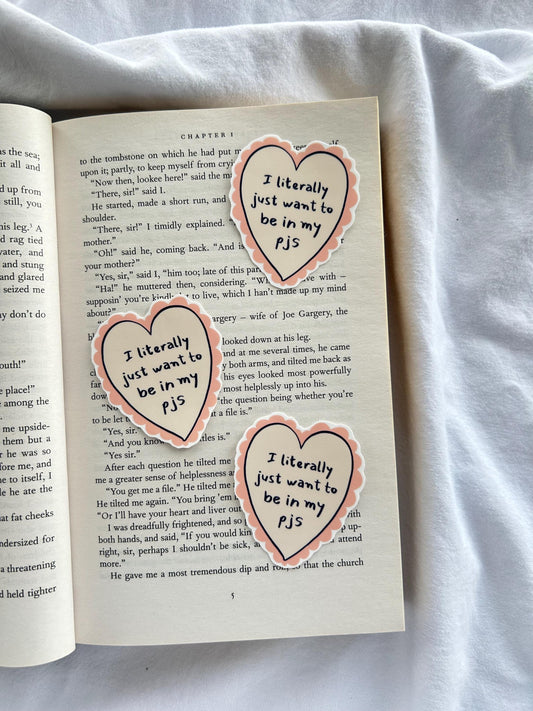 s the sea;
it all and
ed up from
still, you
his leg.³ A
d rag tied
water, and
and stung
and glared
seized me
ay don't do
outh!"
e place!"
e among the
me upside-
them but a
he was so
fore me, and
ne to itself, I
le he ate the
at fat cheeks
ndersized for
a threatening
d held tighter
CHAPTER I
to the tombstone on which he had put m
upon it; partly, to keep myself from cryin
"Now then, lookee here!" said the ma
"There, sir!" said I.
He started, made a short run, and
shoulder.
"There, sir!" I timidly explained. "
mother."
"Oh!" said he, coming back. "And is
your mother?"
"Yes, sir," said I, "him too; late of this par
"Ha!" he muttered then, considering. "W with –
supposin' you're kindly to live, which I han't made up my mind
about?"
argery – wife of Joe Gargery, the
looked down at his leg.
and at several times, he came
y both arms, and tilted me back as
his eyes looked most powerfully
most helplessly up into his.
"the question being whether you're
to be let t a file is."
"Yes, sir."
"And you know ttles is."
"Yes sir."
After each question he tilted me
me a greater sense of helplessness a
"You get me a file." He tilted me
He tilted me again. "You bring 'em
"Or I'll have your heart and liver out
I was dreadfully frightened, and so with
both hands, and said, "If you would kin up-
right, sir, perhaps I shouldn't be sick, a attend
more."
He gave me a most tremendous dip and roll, so that the church
5
I literally
just want to
be in my
pjs
I literally
just want to
be in my
pjs
I literally
just want to
be in my
pjs